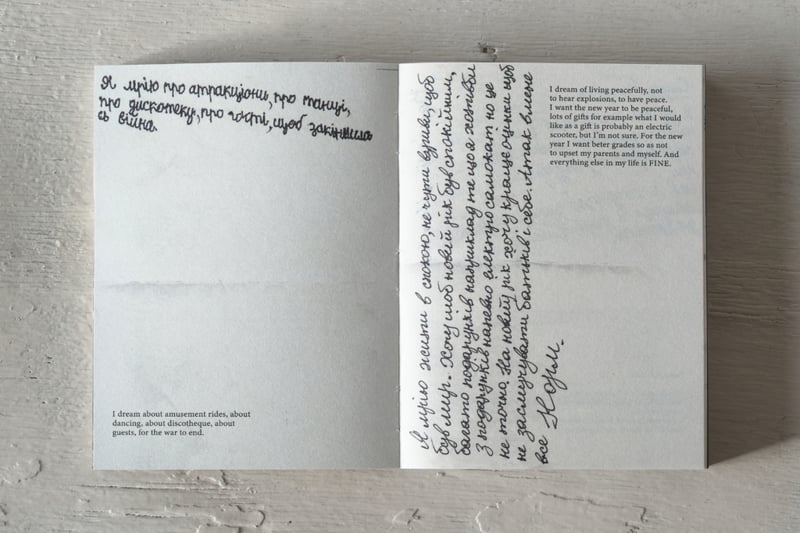 Я мрію про атракціони, про танці,
про дискотеку, про гості, щоб закінчила
сь війна.
I dream about amusement rides, about
dancing, about discotheque, about
guests, for the war to end.
Я мрію жити в спокою, не чути взриви, щоб
був мир. Хочу щоб новий рік був спокійним,
багато подарунків наприклад те що я хотів би
З подарунків напевно електро самокат но це
не точно. На новий рік хочу кращe оцінки щоб
не засмучувати батьків і себе. А так вмене
все Норм.
I dream of living peacefully, not
to hear explosions, to have peace.
I want the new year to be peaceful,
lots of gifts for example what I would
like as a gift is probably an electric
scooter, but I'm not sure. For the new
year I want beter grades so as not
to upset my parents and myself. And
everything else in my life is FINE.